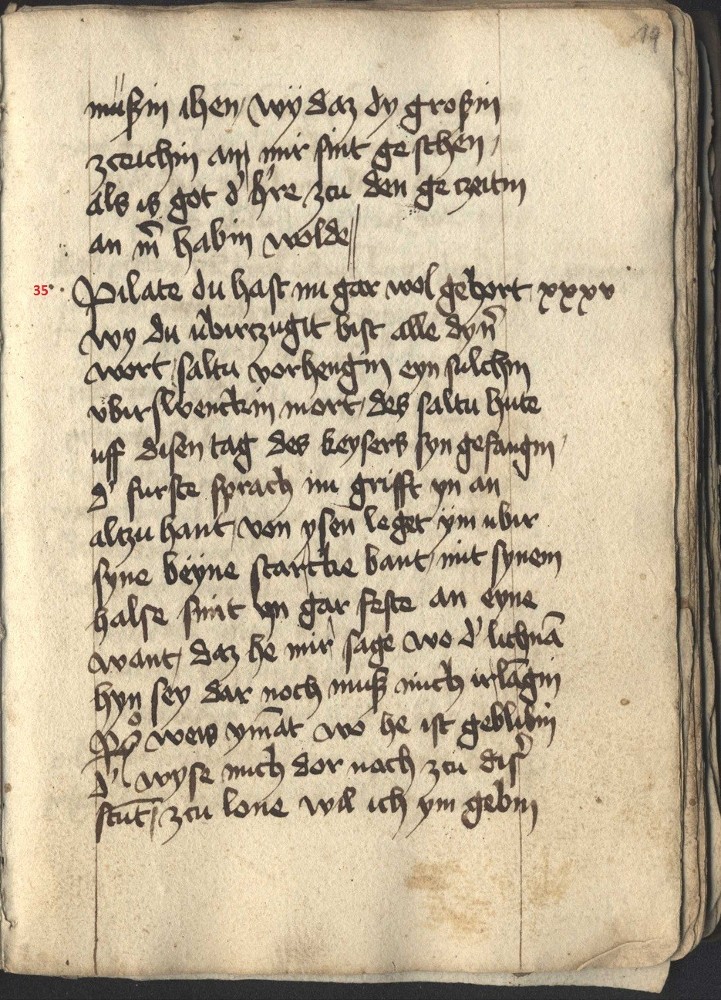 19
mußin ihen / wÿ daz dy großin
zceichin an mir sint geschen /
als is got d' h're zcu den geczeitin
an m̄ habin wolde
35 Pilate du hast nu gar wol gehort xxxv
wy du ubirczugit bist alle dyn̄
wort / saltu vorhengin eyn sulchin
vbirswenckin mort / des saltu hute
uff disen tag des keysers syn gefangin /
d' furste sprach nu grifft yn an
alczu hant / von ysen leget ÿm ubir
syne beÿne starcke bant / mit synem
halse sint yn gar feste an eyne
want / daz he mir sage wo d' lichnā
hyn sey dar noch muß mich irlāgin
weis ymāt wo he ist geblibin
d' wyse mich dor noch zcu dis'
stūt / zcu lone wil ich ym gebin